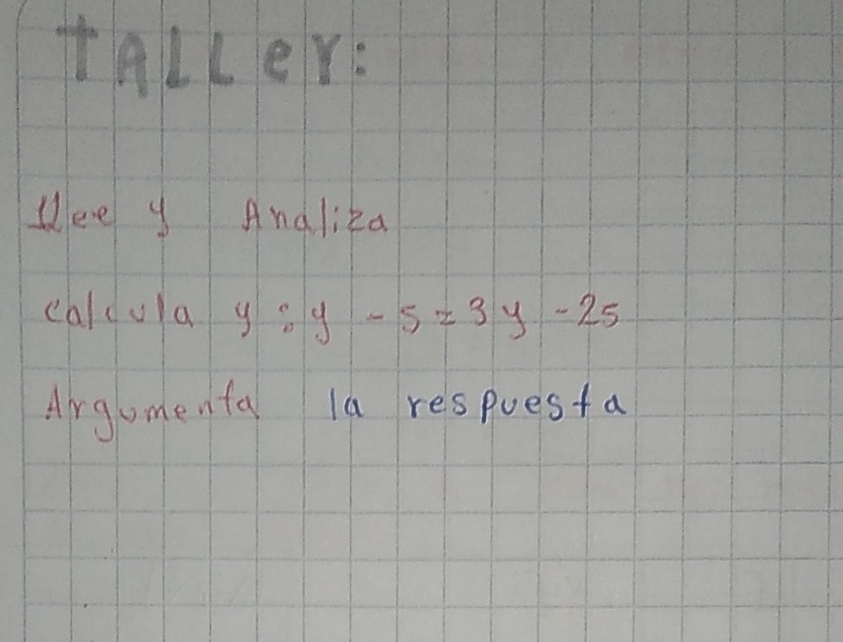 TALLeR:
Lee y Analiza
calcula y : y - 5 = 3y - 25
Argumenta la respuesta